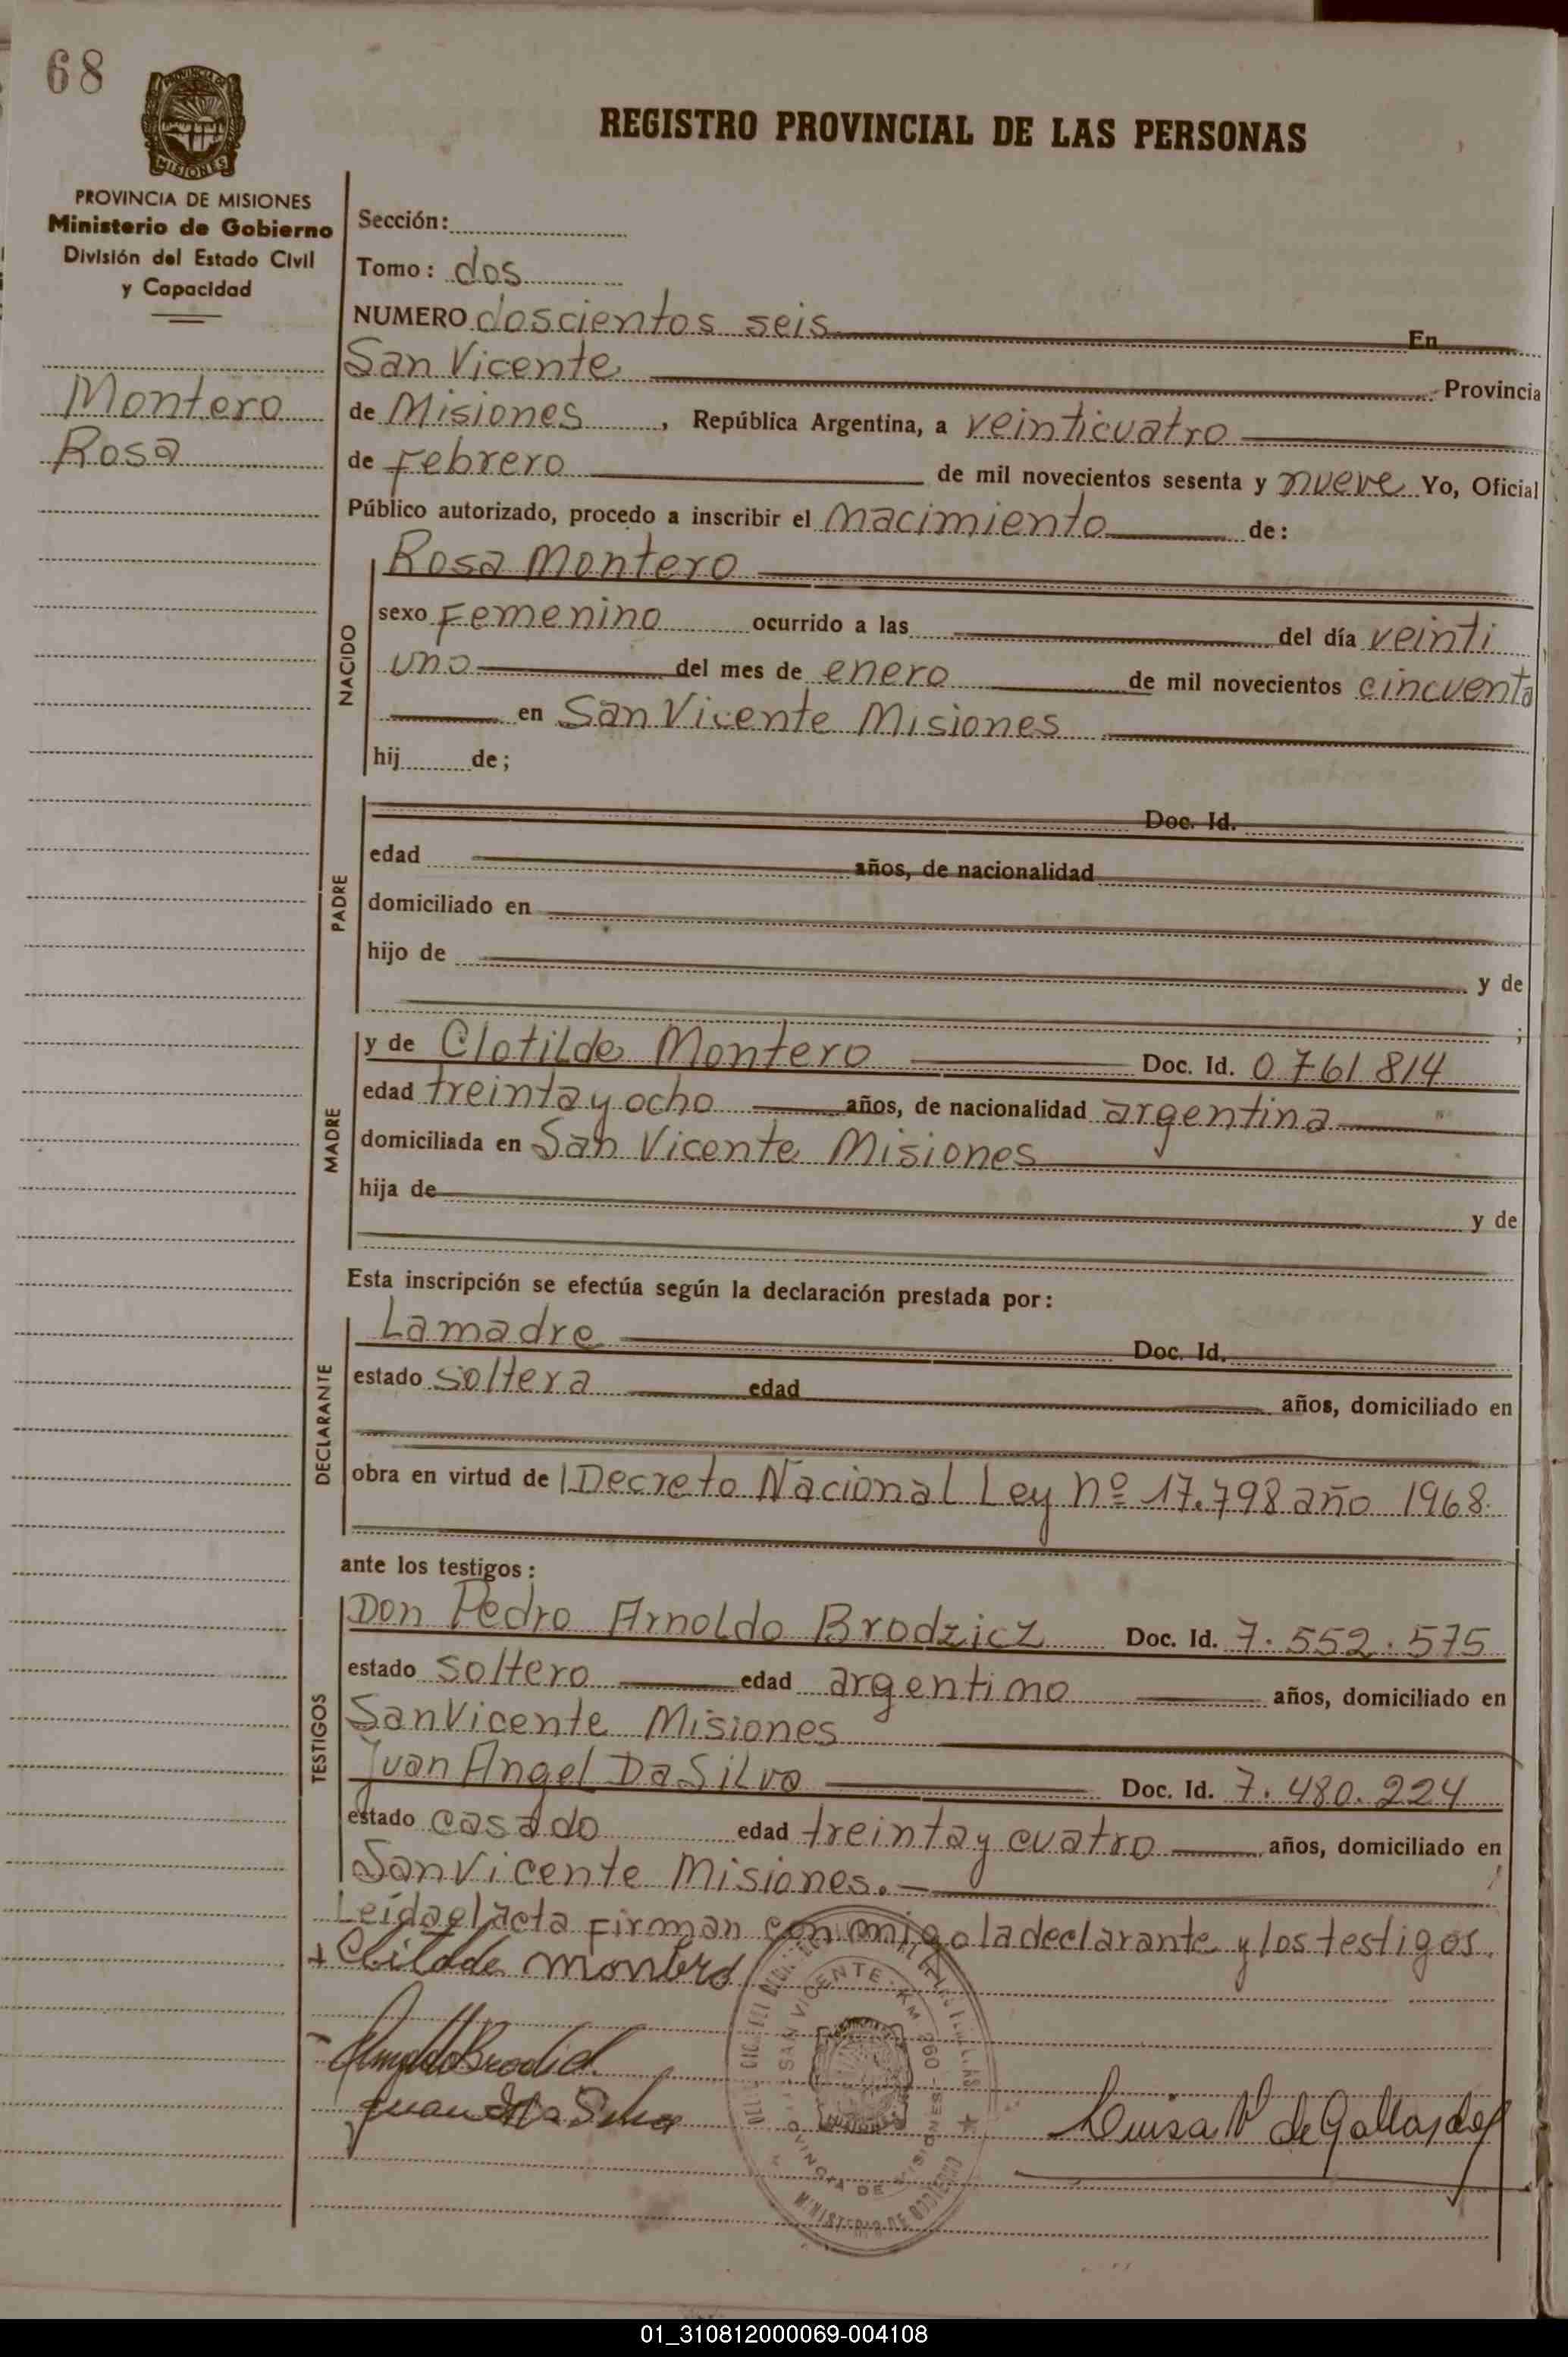 68
MISIONES
PROVINCIA DE MISIONES
Ministerio de Gobierno
División del Estado Civil
y Capacidad
Montero
Rosa
REGISTRO PROVINCIAL DE LAS PERSONAS
Sección:
Tomo: dos
NUMERO doscientos seis En
San Vicente Provincia
de Misiones, República Argentina, a veinticuatro
de Febrero de mil novecientos sesenta y nueve Yo, Oficial
Público autorizado, procedo a inscribir el nacimiento de:
NACIDO
Rosa Montero
sexo Femenino ocurrido a las del día veinti
uno del mes de enero de mil novecientos cincuenta
en San Vicente Misiones
hij de;
PADRE
Doc. Id.
edad años, de nacionalidad
domiciliado en
hijo de y de
;
MADRE
y de Clotilde Montero Doc. Id. 0761814
edad treinta y ocho años, de nacionalidad argentina
domiciliada en San Vicente Misiones
hija de y de
Esta inscripción se efectúa según la declaración prestada por:
DECLARANTE
La madre Doc. Id.
estado soltera edad años, domiciliado en
obra en virtud de Decreto Nacional Ley nº 17.798 año 1968.
ante los testigos:
TESTIGOS
Don Pedro Arnoldo Brodzicz Doc. Id. 7.552.575
estado soltero edad argentino años, domiciliado en
San Vicente Misiones
Juan Angel Da Silva Doc. Id. 7.480.224
estado casado edad treinta y cuatro años, domiciliado en
San Vicente Misiones.-
Leída el acta firman conmigo la declarante y los testigos.
SAN VICENTE - KM 260 -
PROVINCIA DE MISIONES
MINISTERIO DE GOBIERNO
Juan Da Silva
Luisa de Gallardo
01_310812000069-004108